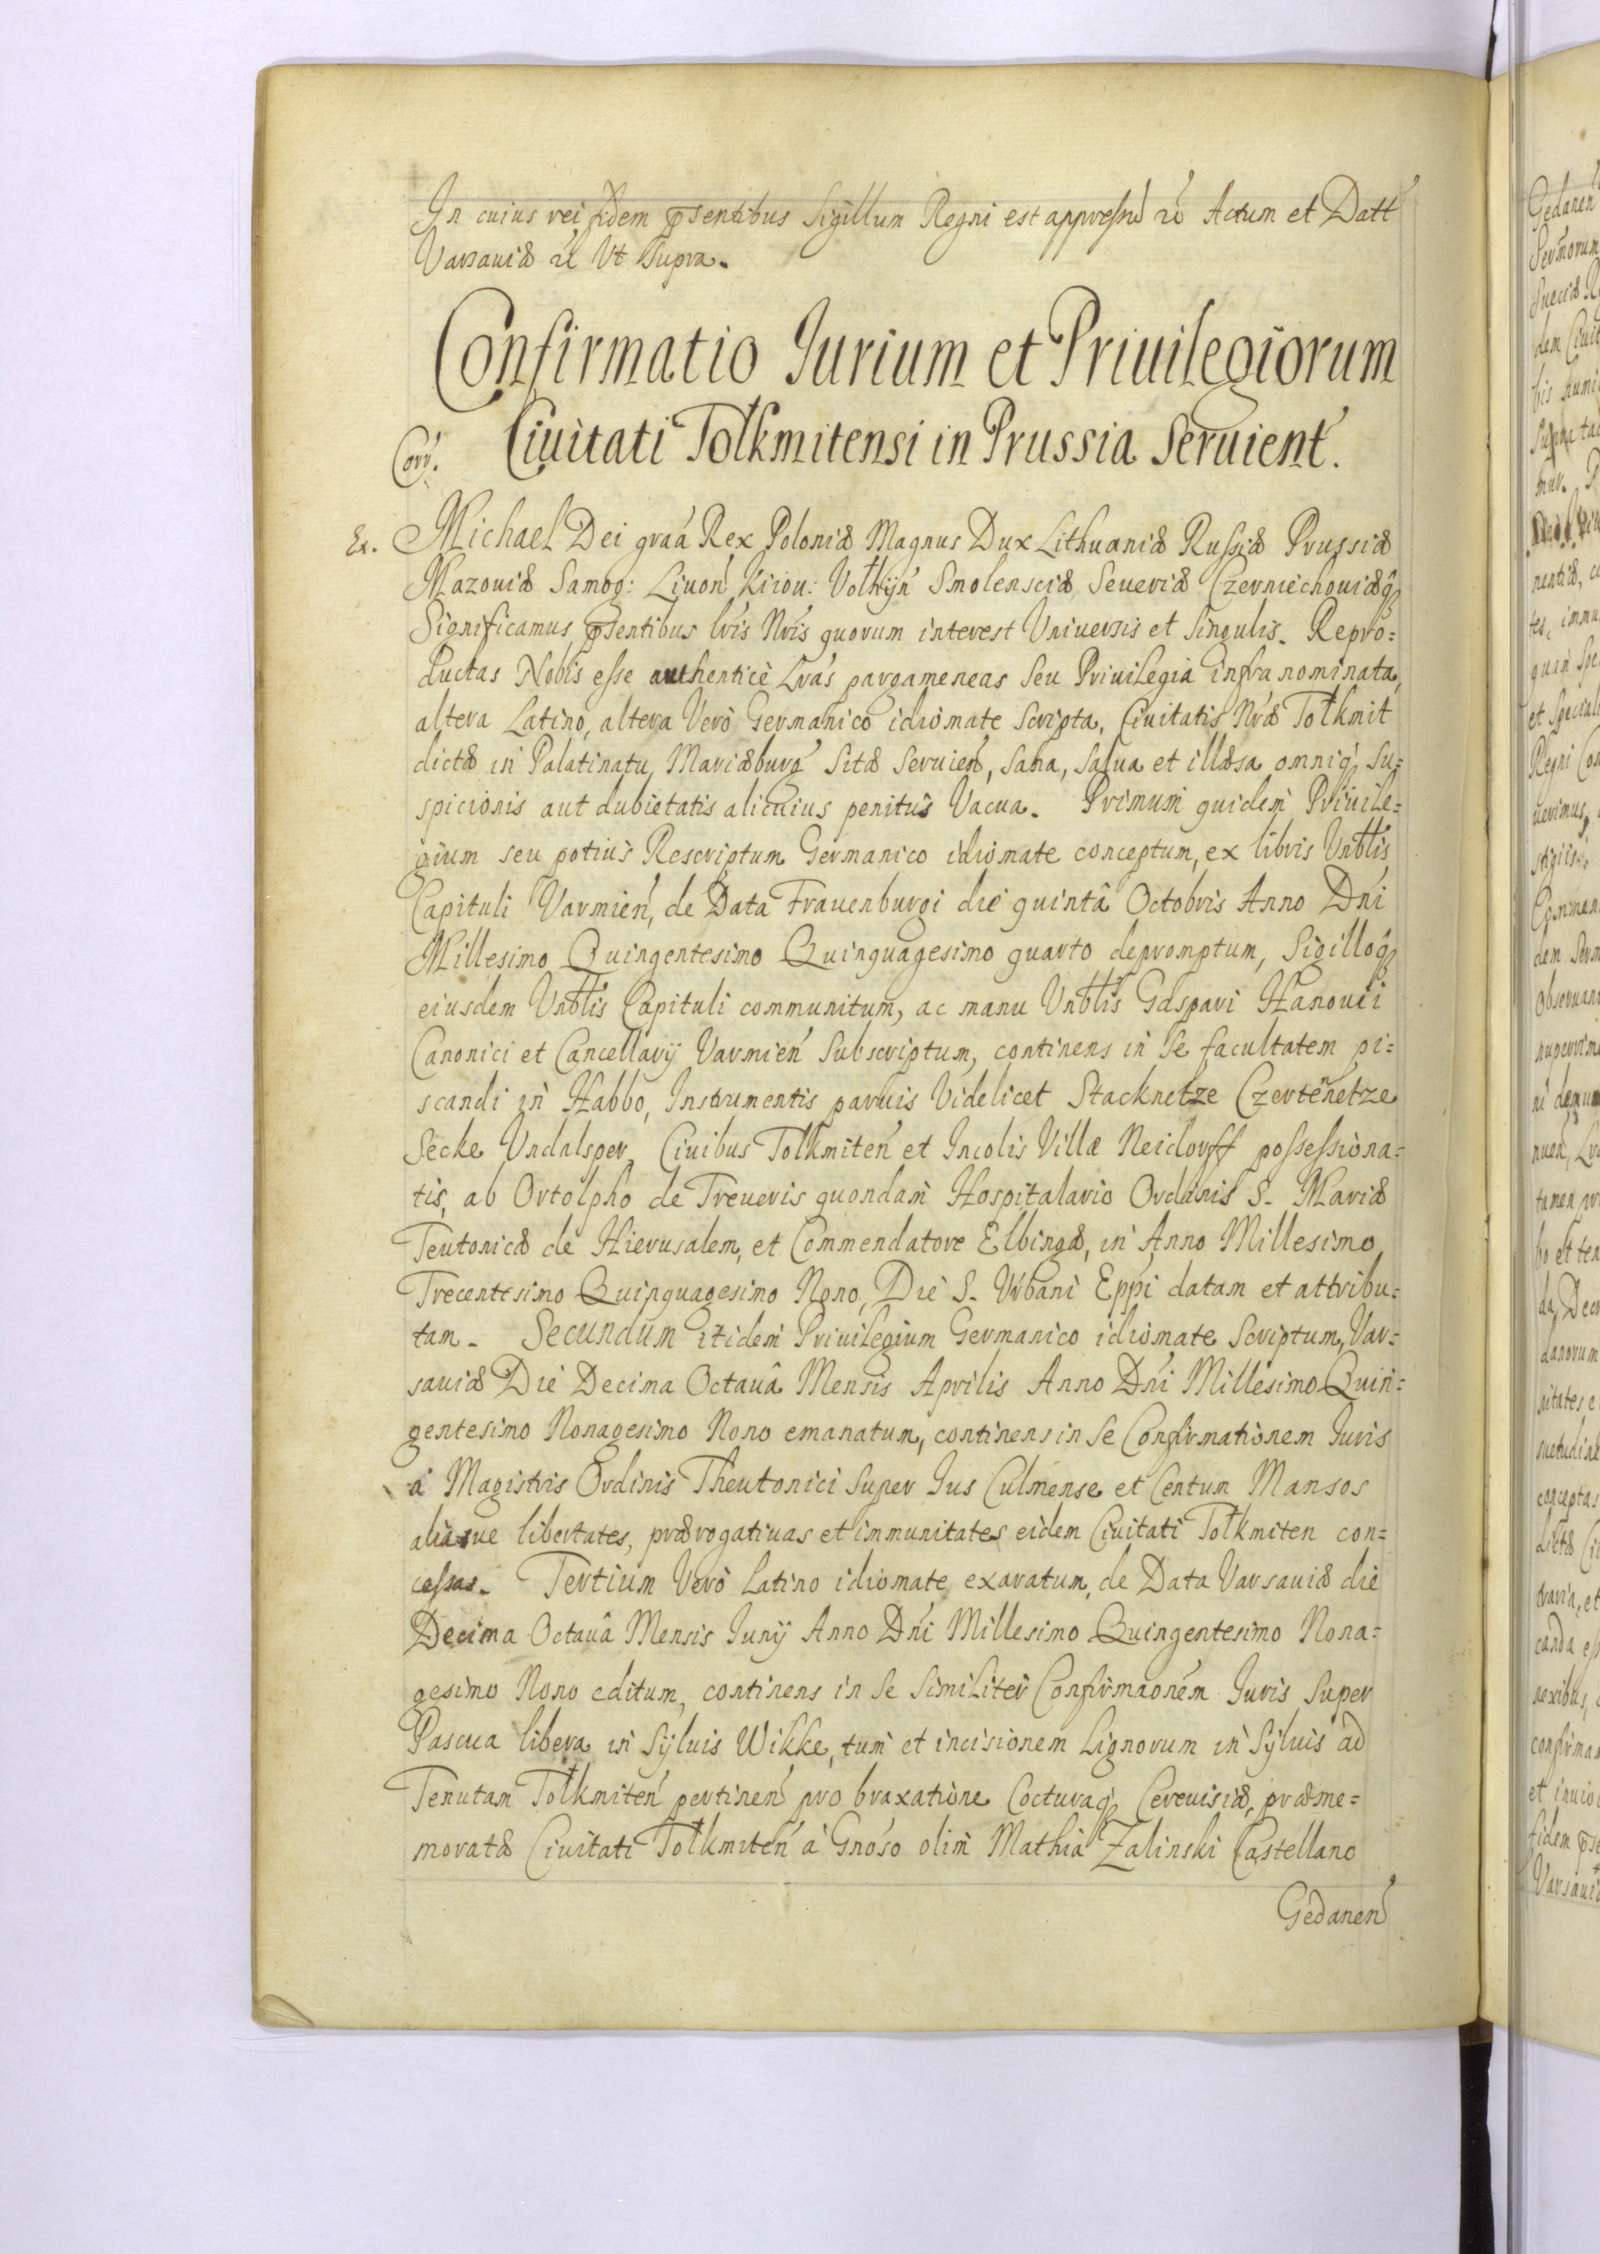 In cuius rei fidem p̄sentibus Sigillum Regni est appressũ &c̃ Actum et Datt́
Varsauiæ &c̃ Vt Supra.
Confirmatio Jurium et Priuilegiorum
Ciuitati Tolkmitensi in Prussia Seruient́.
Corr.
Ex.
Michael Dei graá Rex Poloniæ Magnus Dux Lithuaniæ Russiæ Prussiæ
Mazouiæ Samog: Liuoń Kiiou: Volhÿń Smolensciæ Seueriæ Czerniechouiæq̃
Significamus p̄sentibus lris Nris quorum interest Vniuersis et Singulis. Repro=
ductas Nobis esse authenticè Lrás pargameneas seu Priuilegia infra nominata,
altera Latino, altera Verò Germanico idiomate scripta, Ciuitatis Nræ Tolkmit
dictæ in Palatinatu Mariæburǵ Sitæ seruień, sana, salua et illæsa omniq́ su=
spicionis aut dubietatis alicuius penitus Vacua. Primum quidem Priuile=
gium seu potius Rescriptum Germanico idiomate conceptum, ex libris Vnblis
Capituli Varmień, de Data Frauenburgi die quintâ Octobris Anno Dńi
Millesimo Quingentesimo Quinquagesimo quarto depromptum, Sigilloq̃
eiusdem Vnblis Capituli communitum, ac manu Vnblis Gaspari Hanouii
Canonici et Cancellarÿ Varmień Subscriptum, continens in se facultatem pi=
scandi in Habbo, Instrumentis paruis Videlicet Stacknetze Czertenetze
Secke Vndalsper, Ciuibus Tolkmiteń et Incolis Villæ Neidorff possessiona=
tis, ab Ortolpho de Treueris quondam Hospitalario Ordinis S. Mariæ
Teutonicæ de Hierusalem, et Commendatore Elbingæ, in Anno Millesimo
Trecentesimo Quinquagesimo Nono, Die S. Vrbani Eppi datam et attribu=
tam. Secundum itidem Priuilegium Germanico idiomate Scriptum, Var=
sauiæ Die Decima Octauâ Mensis Aprilis Anno Dńi Millesimo Quin=
gentesimo Nonagesimo Nono emanatum, continens in se Confirmationem Juris
á Magistris Ordinis Theutonici Super Jus Culmense et Centum Mansos
aliasue libertates, prærogatiuas et immunitates eidem Ciuitati Tolkmiten con=
cessas. Tertium Verò Latino idiomate exaratum, de Data Varsauiæ die
Decima Octauâ Mensis Junÿ Anno Dńi Millesimo Quingentesimo Nona=
gesimo Nono editum, continens in se similiter Confirmaoném Juris Super
Pascua libera in Sÿluis Wikke, tum et incisionem Lignorum in Sÿluis ad
Tenutam Tolkmiteń pertineń pro braxatione Cocturaq̃ Cereuisiæ, præme=
moratæ Ciuitati Tolkmiteń à Gnóso olim Mathia Zalinski Castellano
Gedaneń